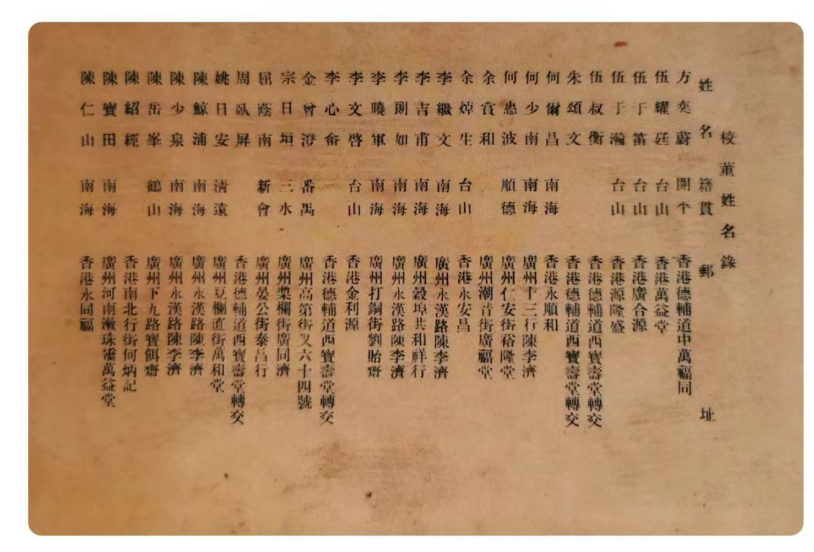 校董姓名錄
姓名 籍貫 郵址
方奕蔚 開平 香港德輔道中萬福同
伍耀廷 台山 香港萬益堂
伍于簉 台山 香港廣合源
伍于瀚 台山 香港源隆盛
伍叔衡 香港德輔道西寶壽堂轉交
朱頌文 香港德輔道西寶壽堂轉交
何爾昌 南海 香港永順和
何少南 南海 廣州十三行陳李濟
何惠波 順德 廣州仁安街裕隆堂
余賞和 廣州潮音街廣福堂
余焯生 台山 香港永安昌
李繼文 南海 廣州永漢路陳李濟
李吉甫 南海 廣州穀埠共和祥行
李則如 南海 廣州永漢路陳李濟
李曉軍 南海 廣州打銅街劉貽齋
李文啓 台山 香港金利源
李心畬 香港德輔道西寶壽堂轉交
金曾澄 番禺 廣州高第街又六十四號
宗日垣 三水 廣州槳欄街廣同濟
屈蔭南 新會 廣州晏公街泰昌行
周臥屏 香港德輔道西寶壽堂轉交
姚日安 清遠 廣州豆欄直街萬和堂
陳鯨浦 南海 廣州永漢路陳李濟
陳少泉 南海 廣州永漢路陳李濟
陳岳峯 鶴山 廣州下九路寶餌齋
陳紹經 香港南北行街何炳記
陳寶田 南海 廣州河南漱珠橋萬益堂
陳仁山 南海 香港永同福